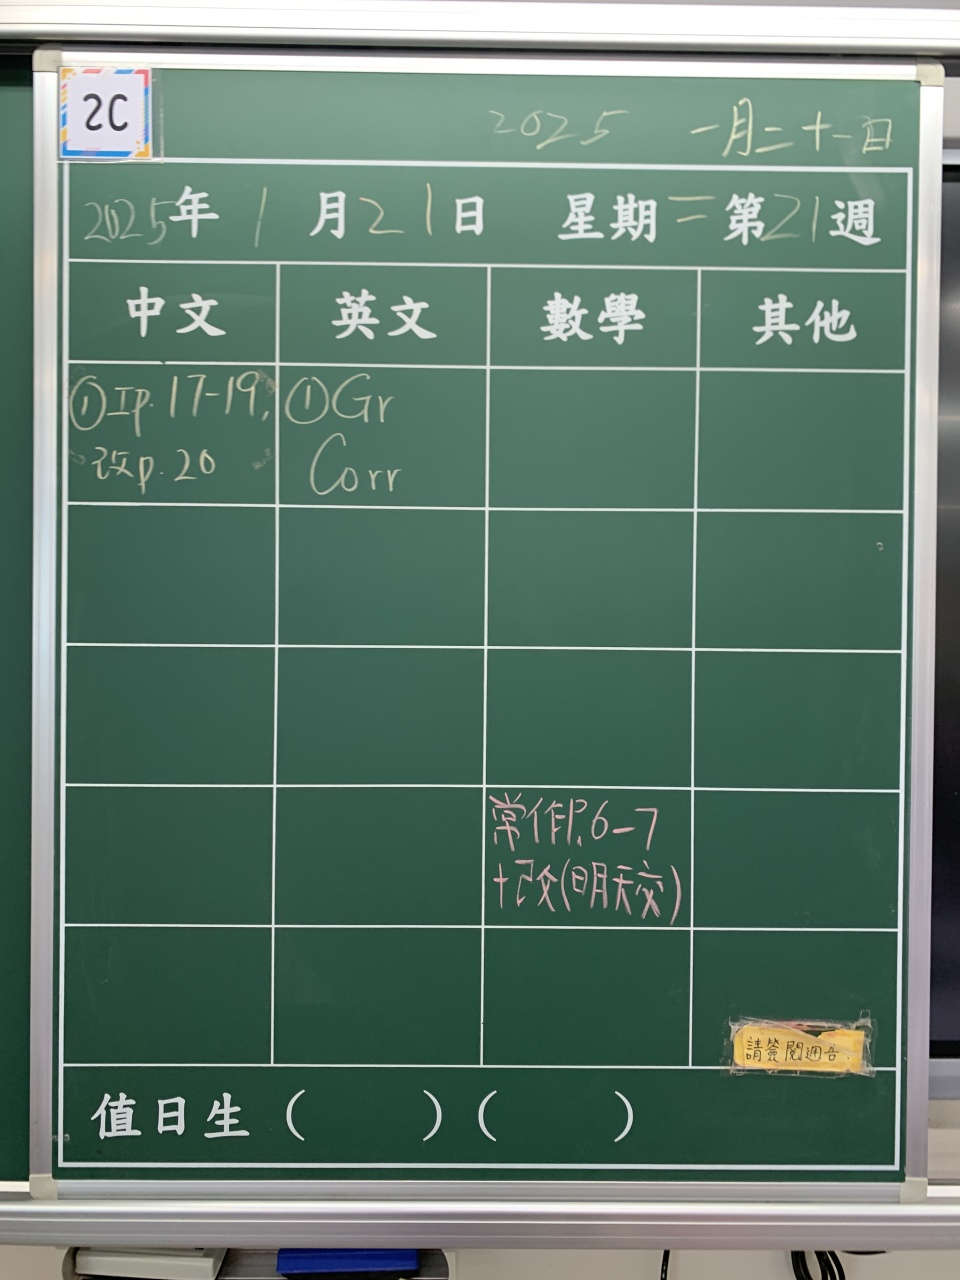 2C
2025 一月二十一日
2025年 1月21日 星期二 第21週
中文 英文 數學 其他
①工p.17-19, ①Gr
改p.20 Corr
常作P.6-7
+改(明天交)
請簽閱通告.
值日生 ( ) ( )